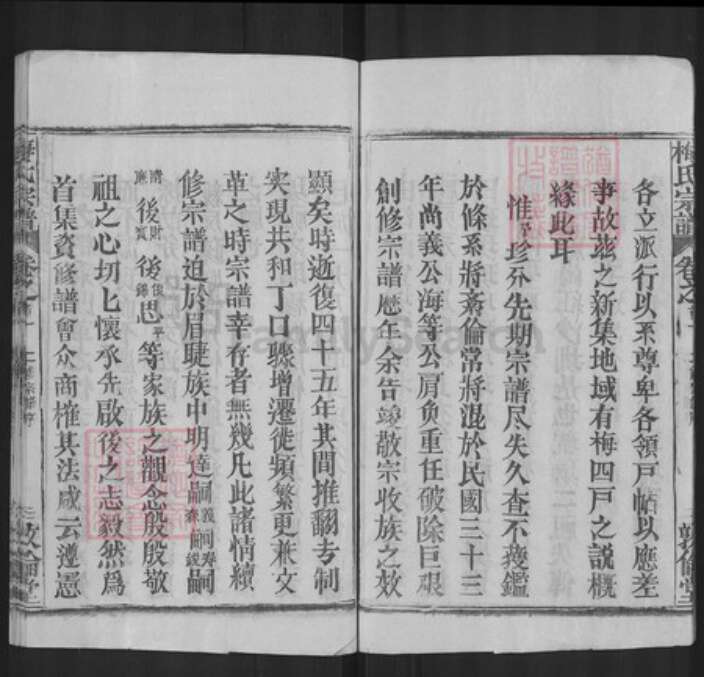 各立派行以系尊卑各領戸帖以應差
事故茲之新集地域有梅四戸之説概
緣此耳
惟予珍外先期宗譜尽失久查不獲鑑
於條系將紊倫常將混於民國三十三
年尚義公海等公肩負重任破除巨艰
創修宗譜歷年余告竣敬宗收族之效
顯矣時逝復四十五年其間推翻专制
实現共和丁口驟增遷徙頻繁更兼文
革之時宗譜幸存者無幾凡此諸情續
修宗譜迫於眉睫族中明達嗣義嗣春嗣寿嗣綬嗣
清廉後財寅後俊錦思平等家族之觀念殷殷敬
祖之心切匕懷承先啟後之志毅然爲
首集資修譜會众商榷其法咸云遵憲
梅氏宗譜
卷之首
敦倫堂
FamilySearch